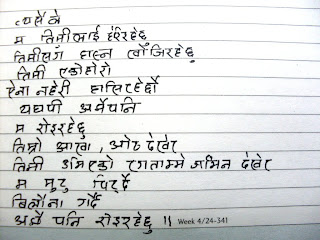 त्यसैले
म तिमीलाई हेरिरहेछु
तिमीसँग हास्न खोजिरहेछु
तिमी एकोहोरो
ऐना नहेरी हासिरहेछौ
यद्यपी अझैपनि
म रोइरहेछु
तिम्रो आखा, ओठ देखेर
तिमी उभिएको रगताम्मे जमिन देखेर
म मुटु चिर्दै
बिलौना गर्दै
अझै पनि रोइरहेछु ॥ Week 4/24-341